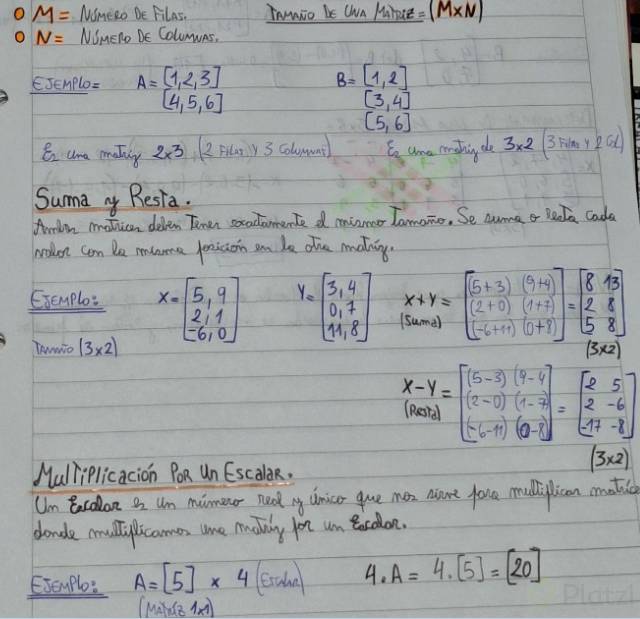 M = NÚMERO DE FILAS. TAMAÑO DE UNA MATRIZ = (M×N)
N = NÚMERO DE COLUMNAS.
EJEMPLO = A = [1,2,3] B = [1,2]
[4,5,6] [3,4]
[5,6]
Es una matriz 2×3, (2 Filas y 3 columnas) Es una matriz de 3×2 (3 Filas y 2 Col)
Suma y Resta.
Ambas matrices deben Tener exactamente el mismo Tamaño. Se suma o Resta cada
valor con la misma posición en la otra matriz.
EJEMPLO: X = [5, 9 Y = [3, 4 X+Y = [(5+3) (9+4)] = [8 13]
2, 1 0, 7 (Suma) (2+0) (1+7) 2 8
-6, 0] 11, 8] (-6+11) (0+8) 5 8
Tamaño (3×2) (3×2)
X-Y = [(5-3) (9-4 = [2 5]
(Resta) (2-0) (1-7) 2 -6
(-6-11) (0-8) -17 -8
(3×2)
MulTiPlicación Por Un Escalar.
Un Escalar es un número real y único que nos sirve para multiplicar matrice
donde multiplicamos una matriz por un Escalar.
EJEMPLO: A = [5] × 4 (Escalar) 4.A = 4.[5] = [20]
(Matriz 1×1)
Platzi